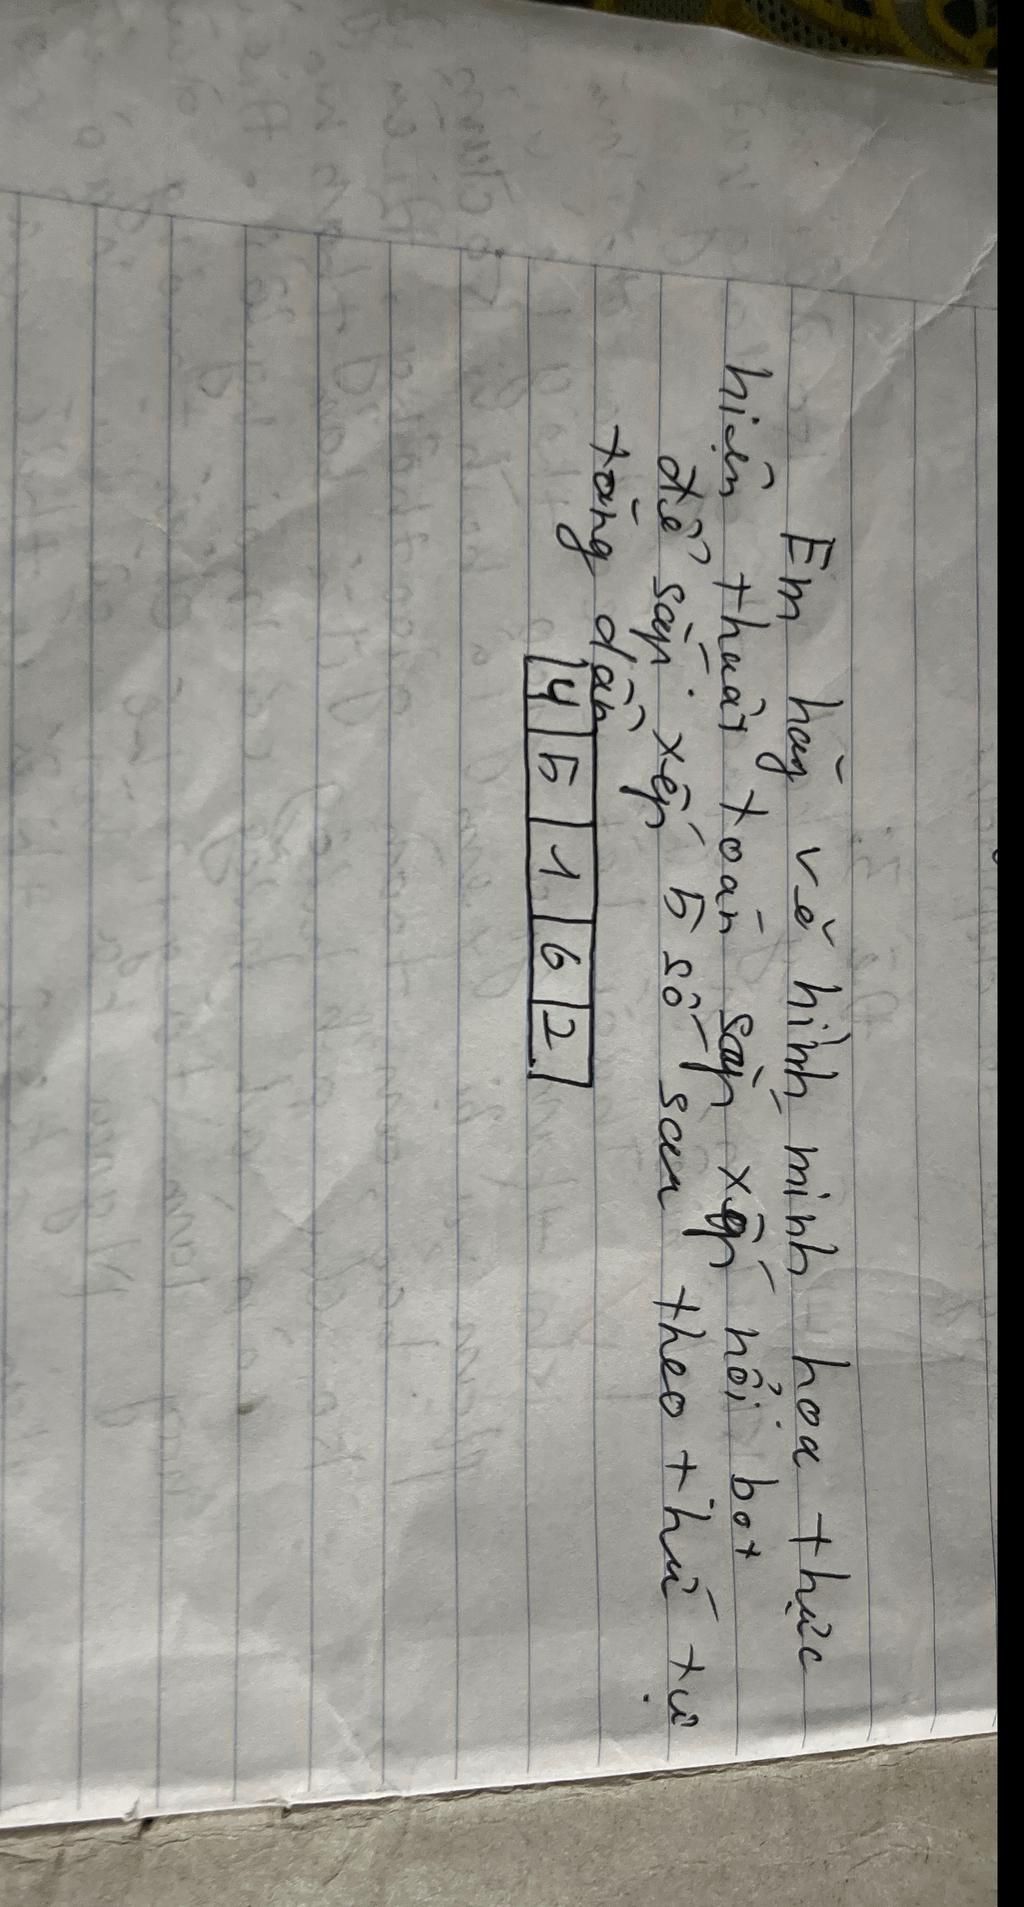 Em hãy vẽ hình minh hoa thực
hiện thuật toán sắp xếp nổi bọt
để sắp xếp 5 số sau theo thứ tự
tăng dần
4 5 1 6 2